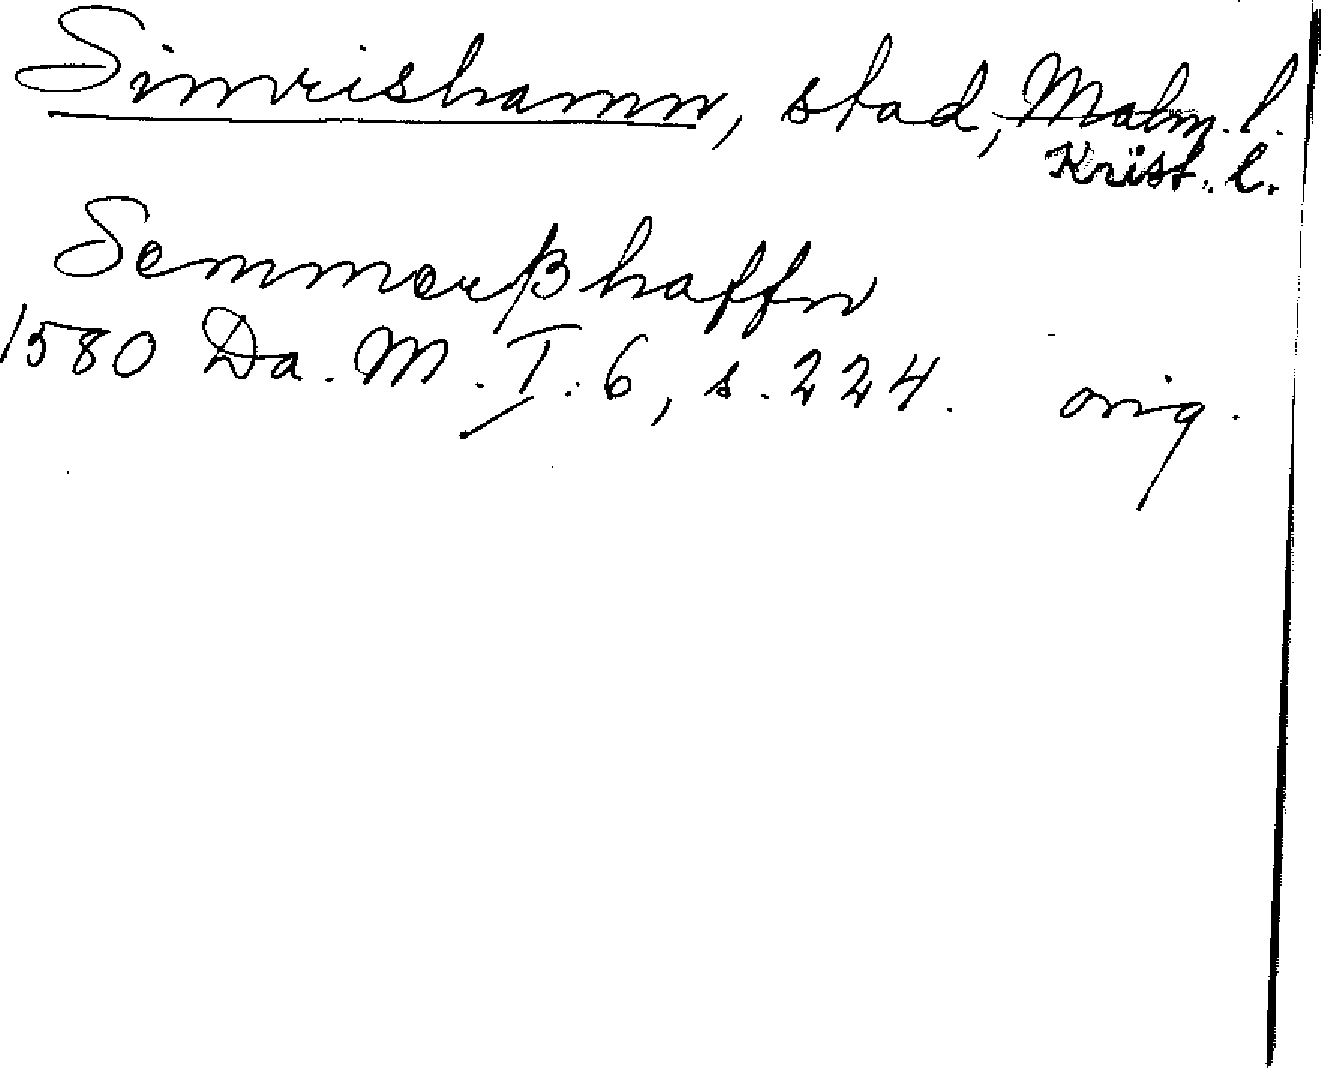 Simrishamn, stad, Malm. l.
Krist. l.
Semmerßhaffn
1580 Da. M. I: 6, s. 224. orig.